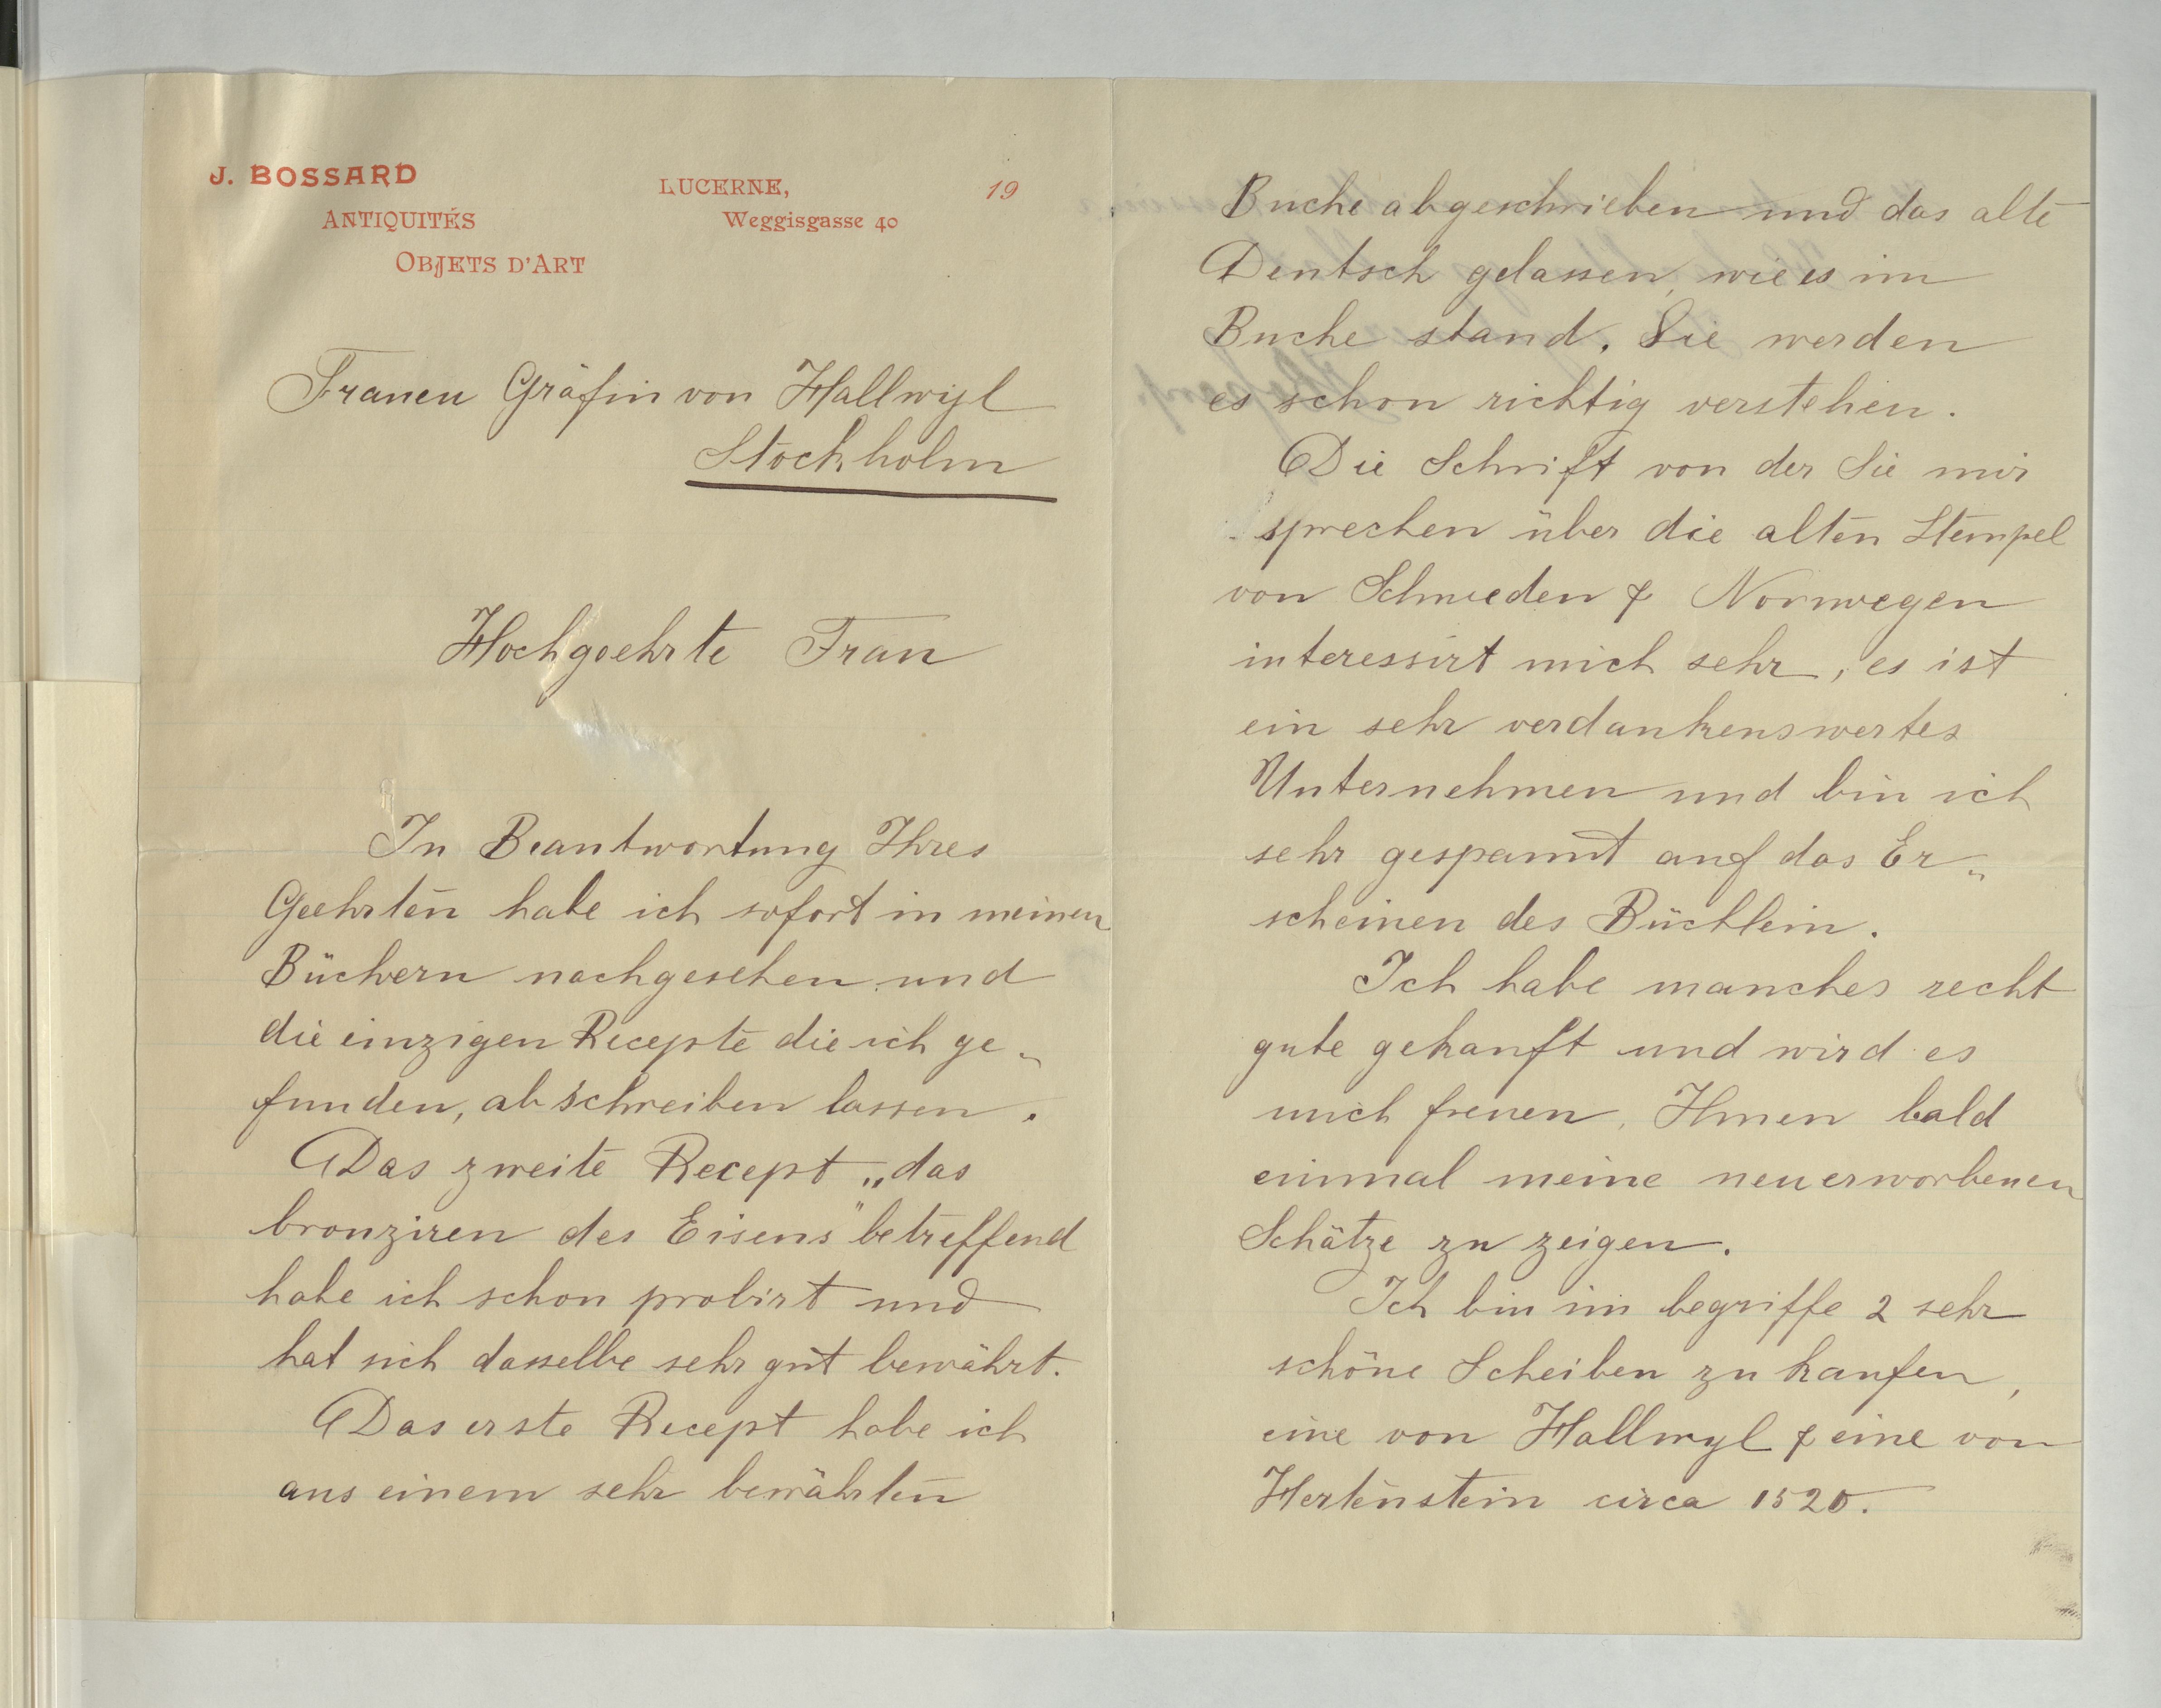 J. BOSSARD
ANTIQUITÉS
OBJETS D'ART
LUCERNE,
Weggisgasse 40
19
Frauen Gräfin von Hallwyl
Stockholm
Hochgeehrte Frau
In Beantwortung Ihres
Geehrten habe ich sofort in meinen
Büchern nachgesehen und
die einzigen Recepte die ich ge„
funden, abschreiben lassen.
Das zweite Recept „das
bronziren des Eisens" betreffend
habe ich schon probirt und
hat sich dasselbe sehr gut bewährt.
Das erste Recept habe ich
aus einem sehr bewährten
Buche abgeschrieben und das alte
Deutsch gelassen, wie es im
Buche stand. Sie werden
es schon richtig verstehen.
Die Schrift von der Sie mir
sprechen über die alten Stempel
von Schweden & Norwegen
interessirt mich sehr, es ist
ein sehr verdankenswertes
Unternehmen und bin ich
sehr gespannt auf das Er„
scheinen des Büchlein.
Ich habe manches recht
gute gekauft und wird es
mich freuen, Ihnen bald
einmal meine neuerworbenen
Schätze zu zeigen.
Ich bin im begriffe 2 sehr
schöne Scheiben zu kaufen,
eine von Hallwyl & eine von
Hertenstein circa 1520.